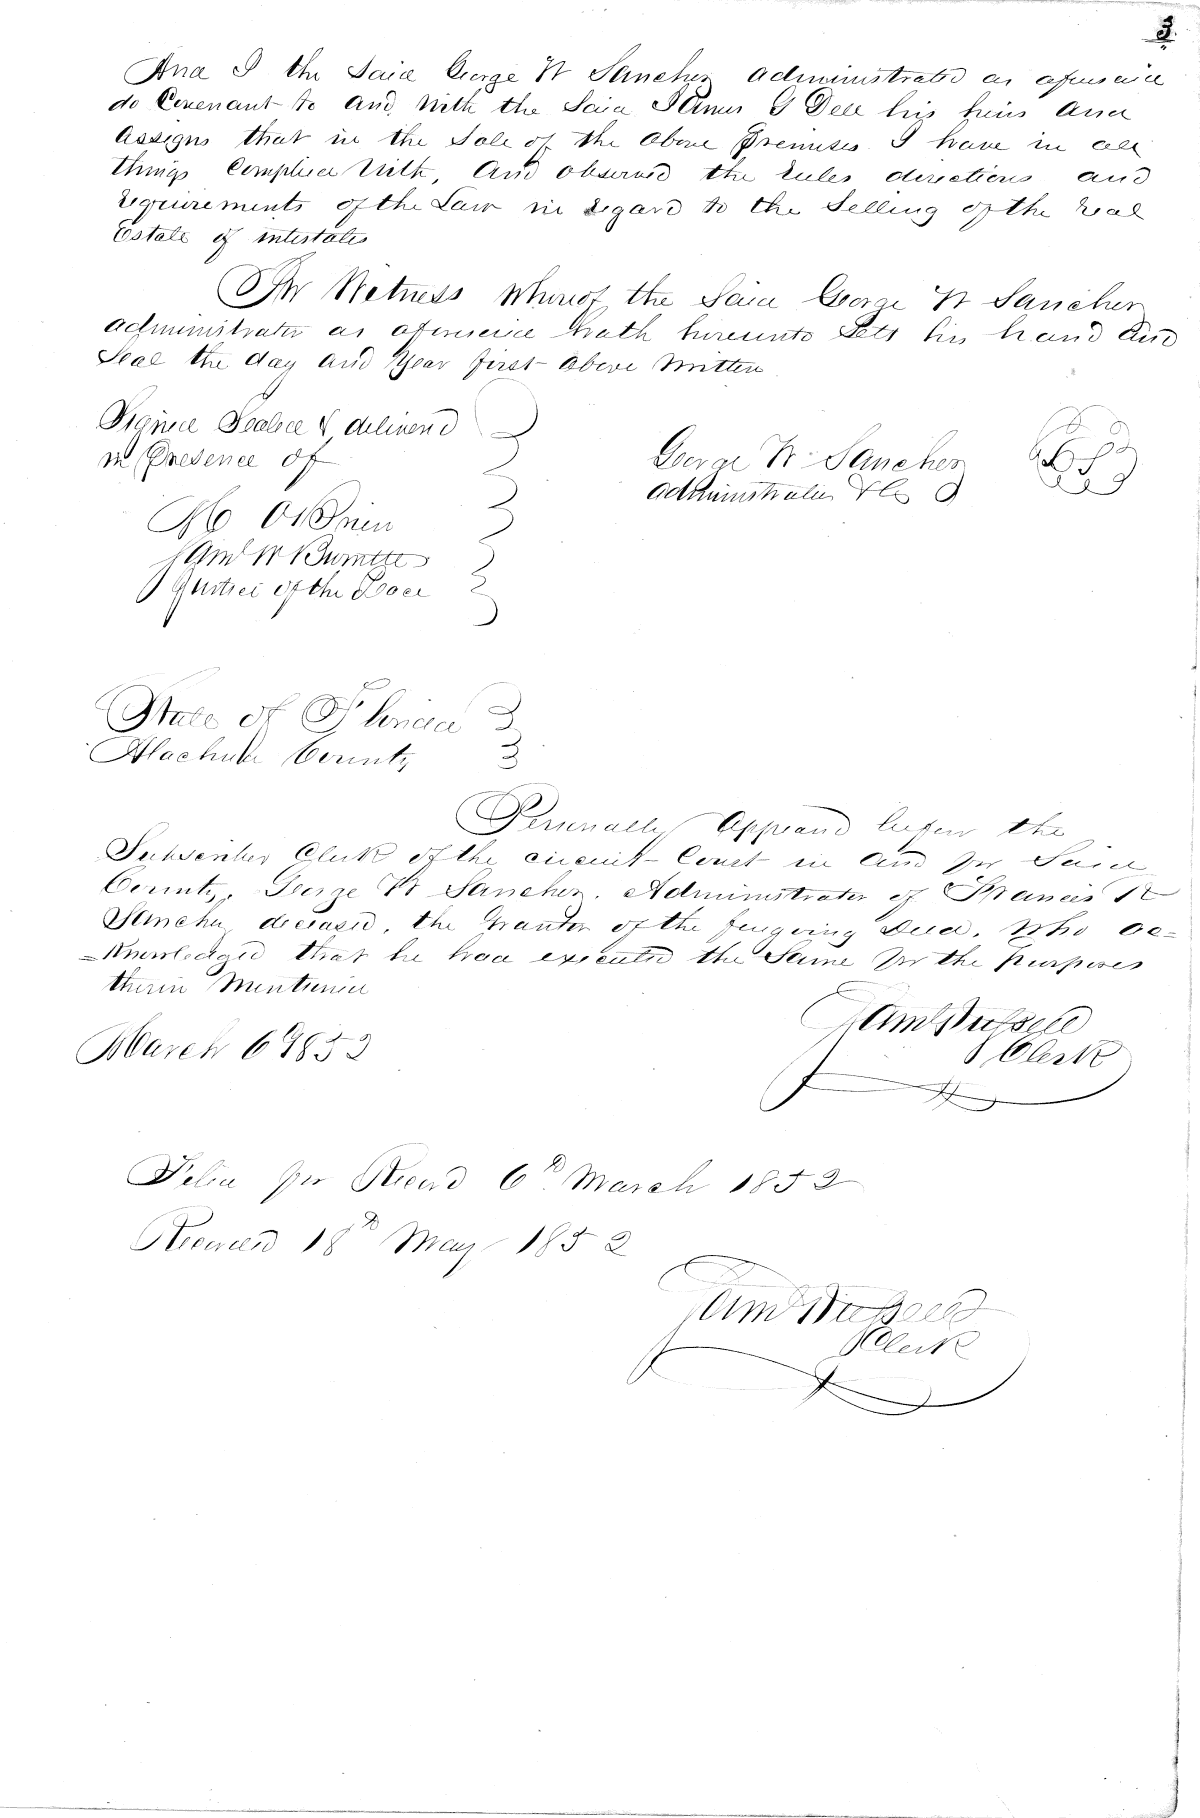 3.
And I the Said George W Sanchez administrated as aforesaid
do Covenant to and with the Said James G Dell his heirs and
assigns that in the Sale of the above Premises I have in all
things Complied With, and observed the rules directions and
requirements of the Law in regard to the Selling of the real
Estate of intestates
In Witness Whereof the Said George W Sanchez
administrator as aforesaid hath hereunto Sets his hand and
Seal the day and Year first above Written
Signed Sealed & delivered
in Presence of
George W. Sanchez
administrator &c
O'Brien
Saml W Burnett
Justice of the Peace
State of Florida
Alachua County
Personally Appeard before the
Subscriber Clerk of the circuit Court in and for Said
County, George W Sanchez. Administrator of Francis R
Sanchez deceased, the Grantor of the foregoing Deed. Who ac=
=Knowledged that he had executed the Same for the purposes
therin Mentioned
March 6th 1852
Saml Russell
Clerk
Filed for Record 6th March 1852
Recorded 18th May 1852
Saml Russell
Clerk